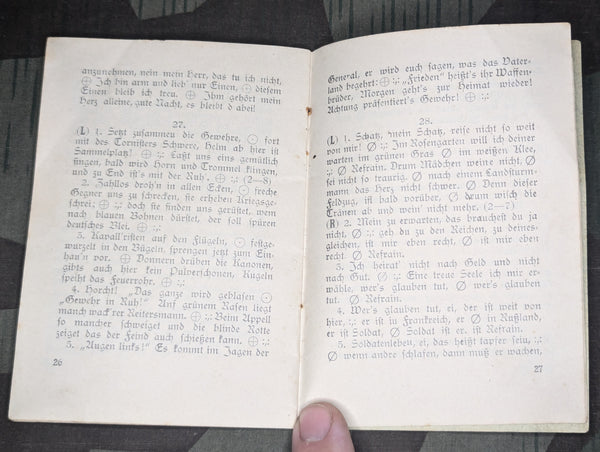 anzunehmen, nein mein Herr, das tu ich nicht,
⊕ Ich bin arm und lieb' nur Einen, ⊕ diesem
Einen bleib ich treu. ⊕ Ihm gehört mein
Herz alleine, gute Nacht, es bleibt dabei!
27.
(L) 1. Setzt zusammen die Gewehre, ⊙ fort
mit des Tornisters Schwere, Helm ab hier ist
Sammelplatz! ⊕ :,: Laßt uns eins gemütlich
singen, bald wird Horn und Trommel klingen,
und zu End ist's mit der Ruh'. ⊕ :,: (2—8)
2. Zahllos droh'n in allen Ecken, ⊙ freche
Gegner uns zu schrecken, sie erheben Kriegsge-
schrei; ⊕ :,: doch sie finden uns gerüstet, wem
nach blauen Bohnen dürstet, der soll spüren
deutsches Blei. ⊕ :,:
3. Kavall'risten auf den Flügeln, ⊙ festge-
wurzelt in den Bügeln, sprengen jetzt zum Ein-
hau'n vor. ⊕ :,: Donnern drüben die Kanonen,
gibts auch hier kein Pulverschonen, Kugeln
speiht das Feuerrohr. ⊕ :,:
4. Horcht! „Das ganze wird geblasen ⊙
„Gewehr in Ruh!" Auf grünem Rasen liegt
manch wack'rer Reitersmann. ⊕ :,: Beim Appell
so mancher schweiget und die blinde Rotte
zeiget das der Feind auch schießen kann. ⊕ :,:
5. „Augen links!" Es kommt im Jagen der
26
General, er wird euch sagen, was das Vater-
land begehrt: ⊕ :,: „Frieden" heißt's ihr Waffen-
brüder, Morgen geht's zur Heimat wieder!
Achtung präsentiert's Gewehr! ⊕ :,:
28.
(L) 1. Schatz, mein Schatz, reise nicht so weit
von mir! ∅ :,: Im Rosengarten will ich deiner
warten im grünen Gras ∅ im weißen Klee,
:,: ∅ Refrain. Drum Mädchen weine nicht, ∅
sei nicht so traurig, ∅ mach einem Landsturm-
mann das Herz nicht schwer. ∅ Denn dieser
Feldzug, ist bald vorüber, ∅ drum wisch die
Tränen ab und wein' nicht mehr. (2—7)
(R) 2. Mein zu erwarten, das brauchest du ja
nicht. :,: ∅ geh du zu den Reichen, zu deines-
gleichen, ist mir eben recht, ∅ ist mir eben
recht ∅ Refrain.
3. Ich heirat' nicht nach Geld und nicht
nach Gut. ∅ :,: Eine treue Seele ich mir er-
wähle, wer's glauben tut, ∅ wer's glauben
tut. ∅ Refrain.
4. Wer's glauben tut, ei, der ist weit von
hier, :,: er ist in Frankreich, er ∅ in Rußland,
er ist Soldat, ∅ Soldat ist er. ∅ Refrain.
5. Soldatenleben, ei, das heißt tapfer sein, :,:
∅ wenn andre schlafen, dann muß er wachen,
27